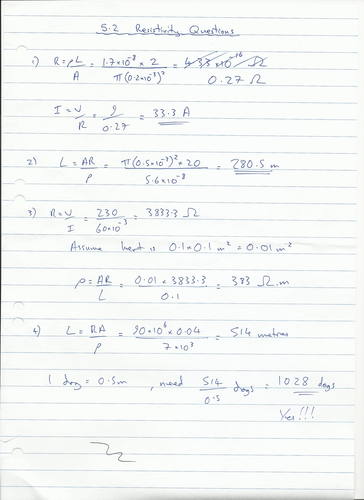 5.2 Resistivity Questions
1) R = ρL/A = 1.7×10⁻⁸ × 2 / π(0.2×10⁻³)² = 0.27 Ω
I = V/R = 9/0.27 = 33.3 A
2) L = AR/ρ = π(0.5×10⁻³)² × 20 / 5.6×10⁻⁸ = 280.5 m
3) R = V/I = 230 / 60×10⁻³ = 3833.3 Ω
Assume heart is 0.1×0.1 m² = 0.01 m²
ρ = AR/L = 0.01 × 3833.3 / 0.1 = 383 Ω.m
4) L = RA/ρ = 90×10⁶ × 0.04 / 7×10³ = 514 metres
1 dog = 0.5m , need 514/0.5 dogs = 1028 dogs
Yes!!!